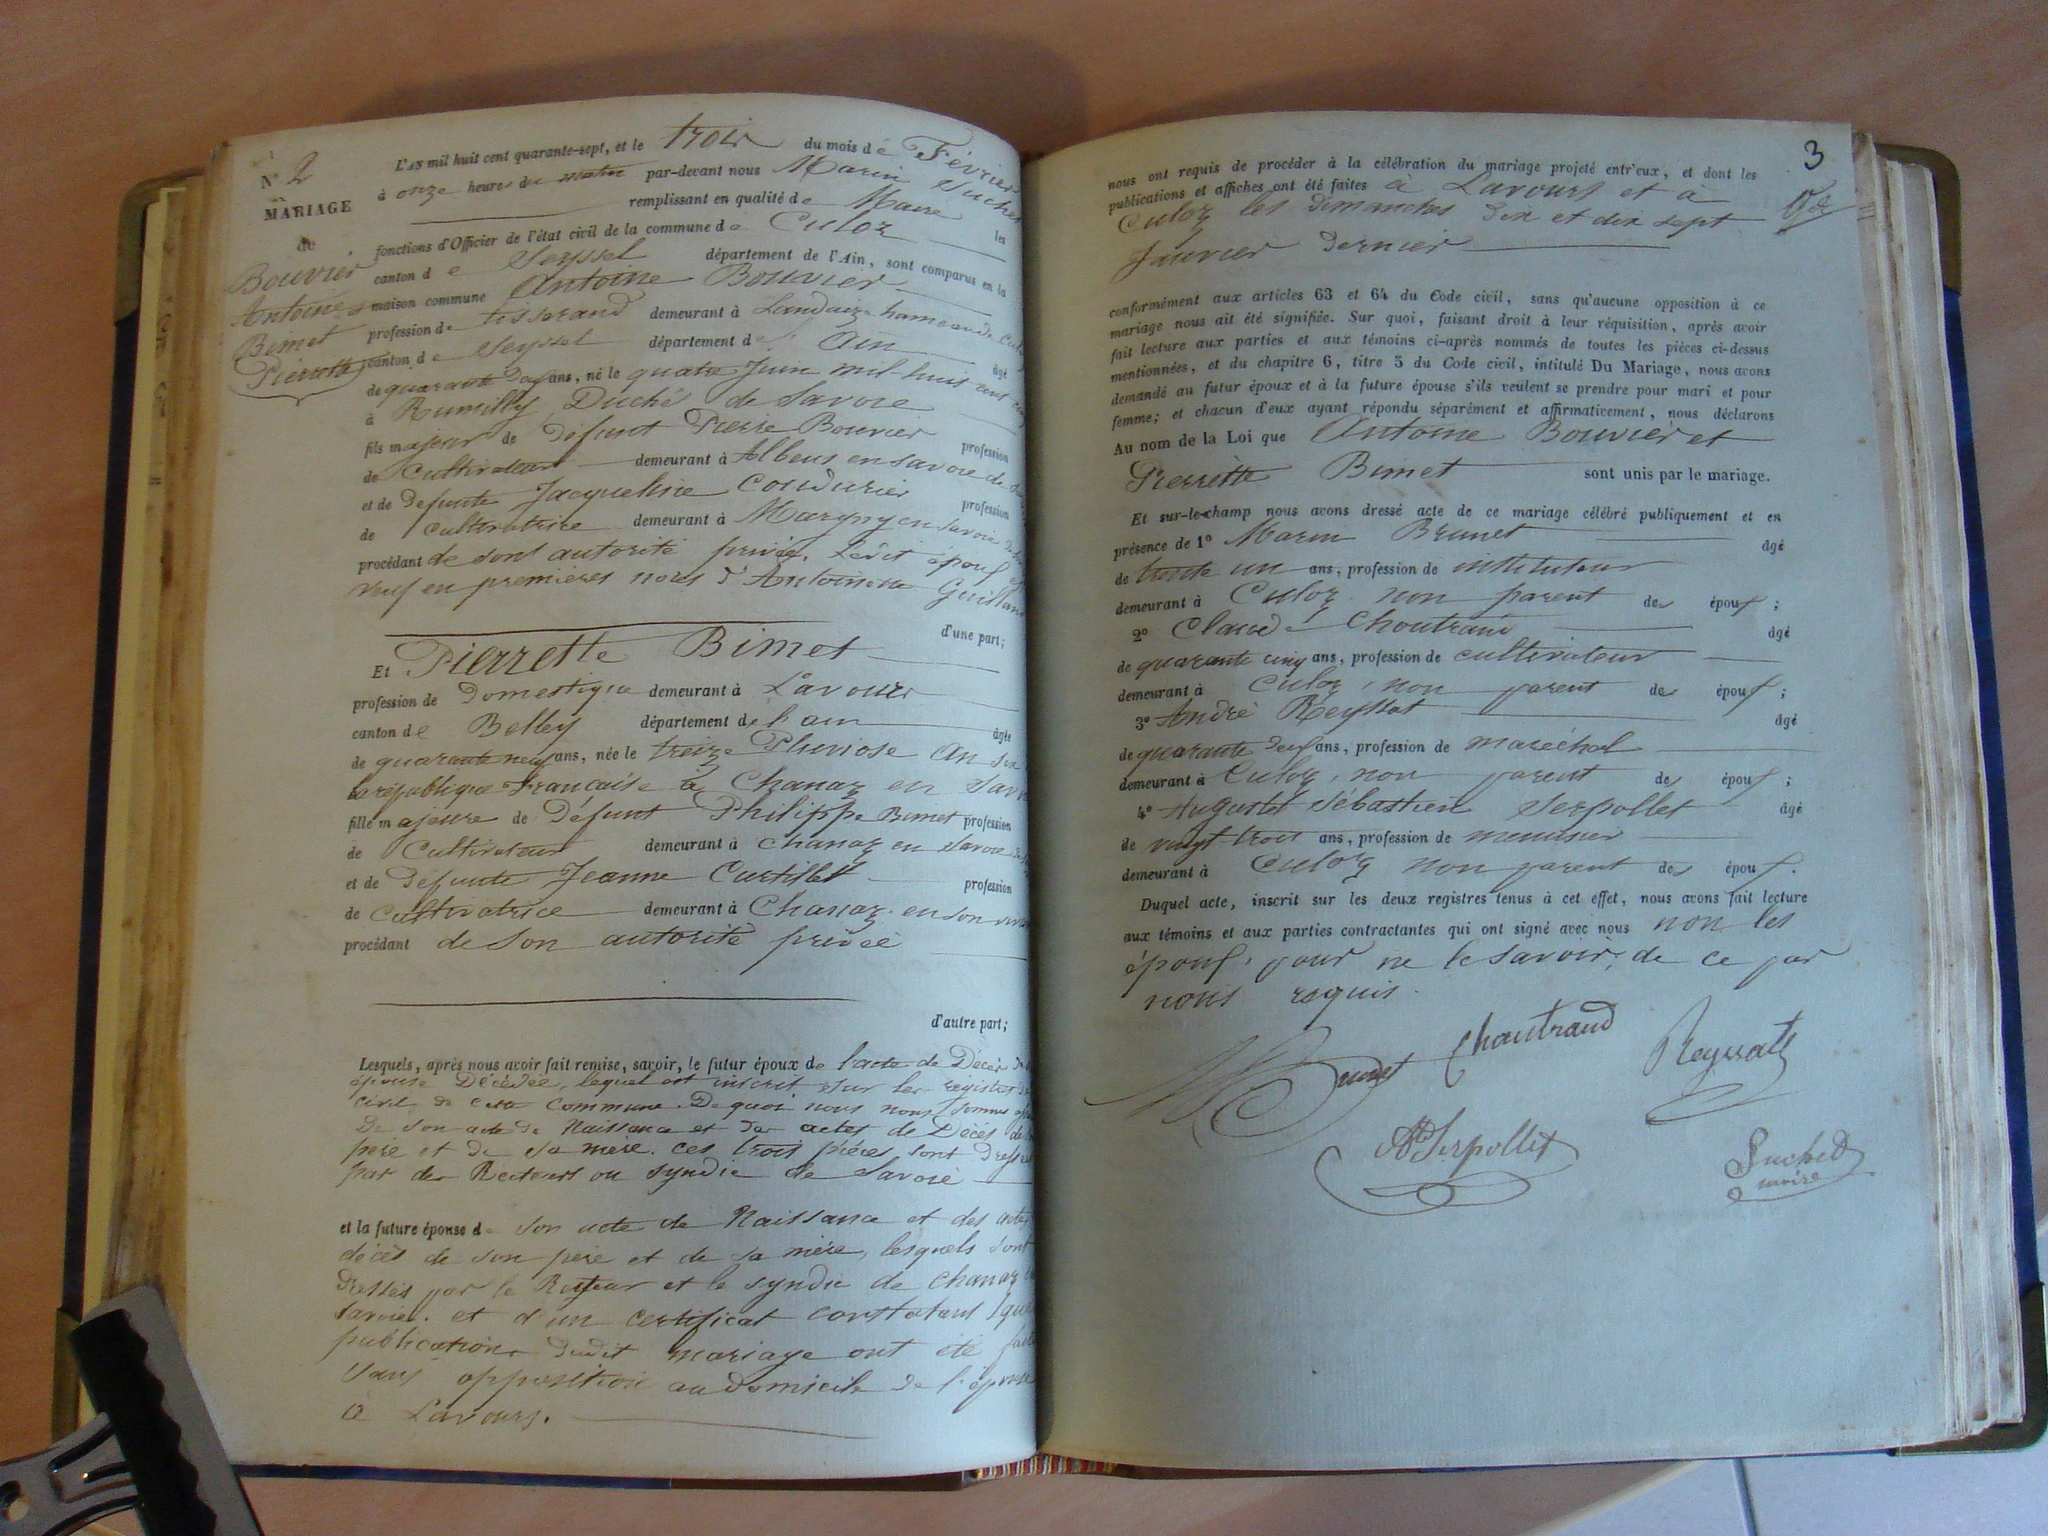 N° 2
MARIAGE
de
Bouvier
Antoine
Bimet
Pierrette
L'AN mil huit cent quarante-sept, et le trois du mois de Février
à onze heures du matin par-devant nous Marin Suchet
remplissant en qualité de Maire les
fonctions d'Officier de l'état civil de la commune de Culoz
canton de Seyssel département de l'Ain, sont comparus en la
maison commune Antoine Bouvier
profession de tisserand demeurant à Landaize hameau de
canton de Seyssel département de Ain âgé
de quarante deux ans, né le quatre Juin mil huit cent
à Rumilly, Duché de Savoie
fils majeur de défunt Pierre Bouvier profession
de Cultivateur demeurant à Albens en Savoie
et de défunte Jacqueline Coudurier profession
de Cultivatrice demeurant à Marigny en Savoie
procédant de sont autorité privée. Ledit époux
veuf en premières noces d'Antoinette
d'une part;
Et Pierrette Bimet
profession de Domestique demeurant à Lavours
canton de Belley département de l'ain âgée
de quarante neuf ans, née le treize Pluviose an six
la république Française à Chanaz en
fille majeure de Défunt Philippe Bimet profession
de Cultivateur demeurant à Chanaz en Savoie
et de Defunte Jeanne Curtillet profession
de Cultivatrice demeurant à Chanaz en son
procédant de son autorité privée
d'autre part;
Lesquels, après nous avoir fait remise, savoir, le futur époux de l'acte de Décès
épouse Décédée, lequel est inscrit sur les registres
civil de cette commune. De quoi nous nous sommes
De son acte de Naissance et des actes de Décès de
père et de sa mère. ces trois pièces sont
par des Recteurs ou syndic de Savoie
et la future épouse de son acte de Naissance et des
décès de son père et de sa mère, lesquels sont
dressés par le Recteur et le syndic de Chanaz
Savoie. et d'un certificat constatant que
publications dudit mariage ont été
sans opposition au domicile de l'épouse
à Lavours.
3
nous ont requis de procéder à la célébration du mariage projeté entr'eux, et dont les
publications et affiches ont été faites à Lavours et à
Culoz les dimanches dix et dix sept
Janvier dernier
conformément aux articles 63 et 64 du Code civil, sans qu'aucune opposition à ce
mariage nous ait été signifiée. Sur quoi, faisant droit à leur réquisition, après avoir
fait lecture aux parties et aux témoins ci-après nommés de toutes les pièces ci-dessus
mentionnées, et du chapitre 6, titre 5 du Code civil, intitulé Du Mariage, nous avons
demandé au futur époux et à la future épouse s'ils veulent se prendre pour mari et pour
femme; et chacun d'eux ayant répondu séparément et affirmativement, nous déclarons
Au nom de la Loi que Antoine Bouvier et
Pierrette Bimet sont unis par le mariage.
Et sur-le-champ nous avons dressé acte de ce mariage célébré publiquement et en
présence de 1° Marin Brunet âgé
de trente un ans, profession de instituteur
demeurant à Culoz non parent des époux;
2° Claude Chautraud âgé
de quarante cinq ans, profession de cultivateur
demeurant à Culoz, non parent des époux;
3° André Reyssat âgé
de quarante deux ans, profession de maréchal
demeurant à Culoz, non parent des époux;
4° Auguste Sébastien Serpollet âgé
de vingt trois ans, profession de menuisier
demeurant à Culoz non parent des époux.
Duquel acte, inscrit sur les deux registres tenus à cet effet, nous avons fait lecture
aux témoins et aux parties contractantes qui ont signé avec nous non les
époux, pour ne le savoir; de ce par
nous requis.
Brunet Chautraud Reyssat
Serpollet Suchet
maire